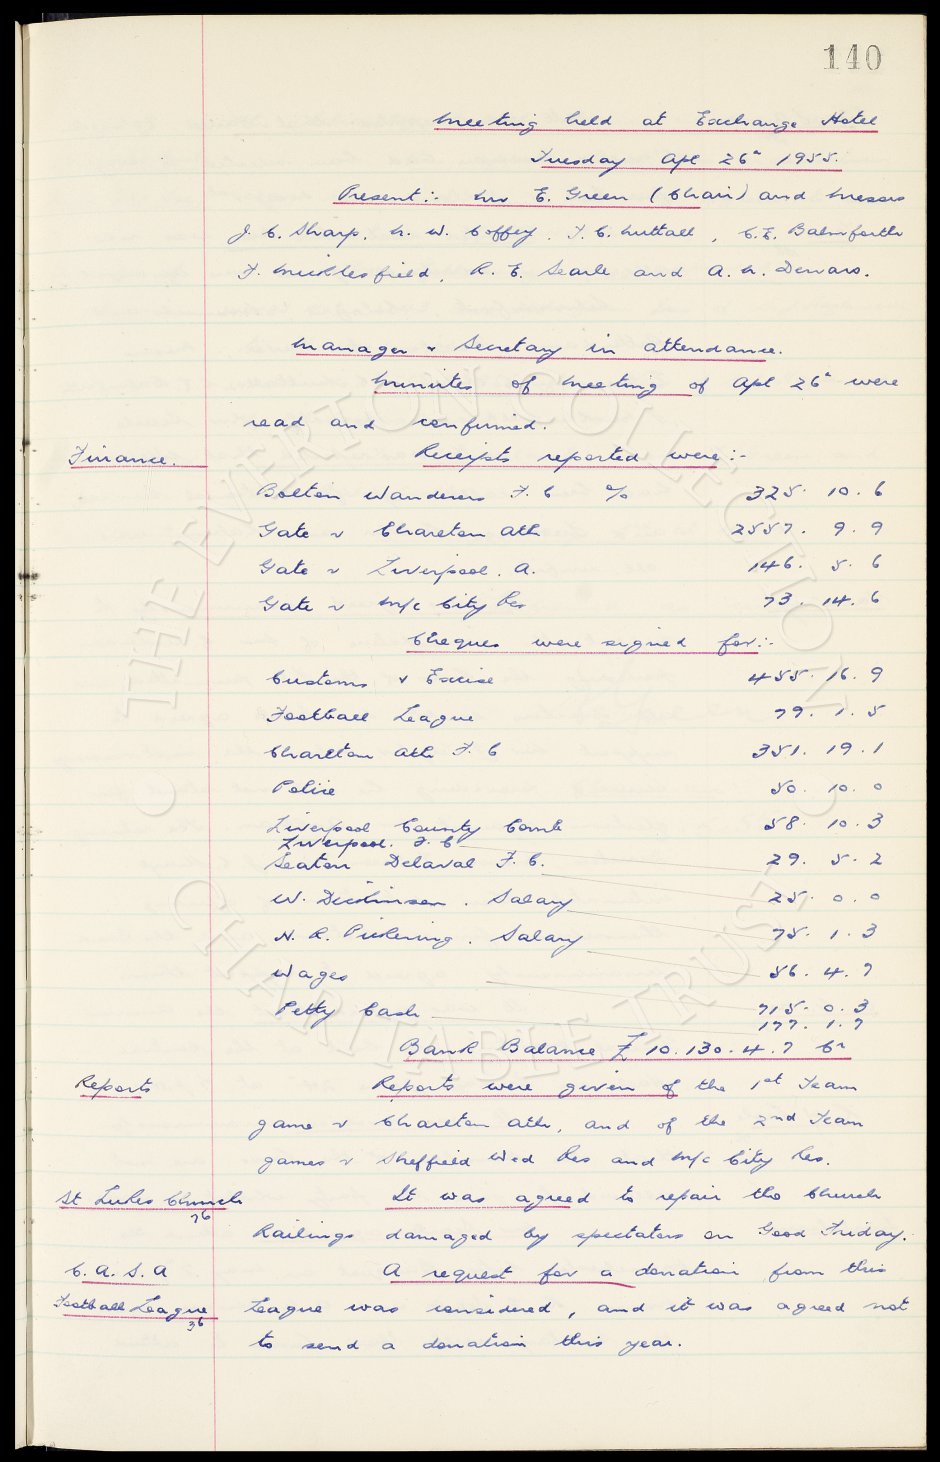 140
Meeting held at Exchange Hotel
Tuesday Apl 26th 1955.
Present:- Mr E. Green (Chair) and Messrs
J. C. Sharp, N. W. Coffey, F. C. Nuttall, C. E. Balmforth
F. Micklesfield, R. E. Searle and A. N. Denaro.
Manager & Secretary in attendance.
Minutes of Meeting of Apl 26th were
read and confirmed.
Finance. Receipts reported were:-
Bolton Wanderers F. C % 325. 10. 6
Gate v Charlton Ath 2557. 9. 9
Gate v Liverpool. A. 146. 5. 6
Gate v M/c City Res 73. 14. 6
Cheques were signed for:-
Customs & Excise 455. 16. 9
Football League 79. 1. 5
Charlton Ath F. C 351. 19. 1
Police 50. 10. 0
Liverpool County Comb 58. 10. 3
Liverpool. F. C
Seaton Delaval F. C. 29. 5. 2
W. Dickinson. Salary 25. 0. 0
H. R. Pickering. Salary 75. 1. 3
Wages 56. 4. 7
Petty Cash 715. 0. 3
177. 1. 7
Bank Balance £ 10.130. 4. 7 Cr
Reports Reports were given of the 1st Team
game v Charlton Ath, and of the 2nd Team
games v Sheffield Wed Res and M/c City Res.
St Lukes Church It was agreed to repair the Church
76
Railings damaged by spectators on Good Friday.
C. A. S. A A request for a donation from this
Football League League was considered, and it was agreed not
36
to send a donation this year.
© THE EVERTON COLLECTION ©
CHARITABLE TRUST